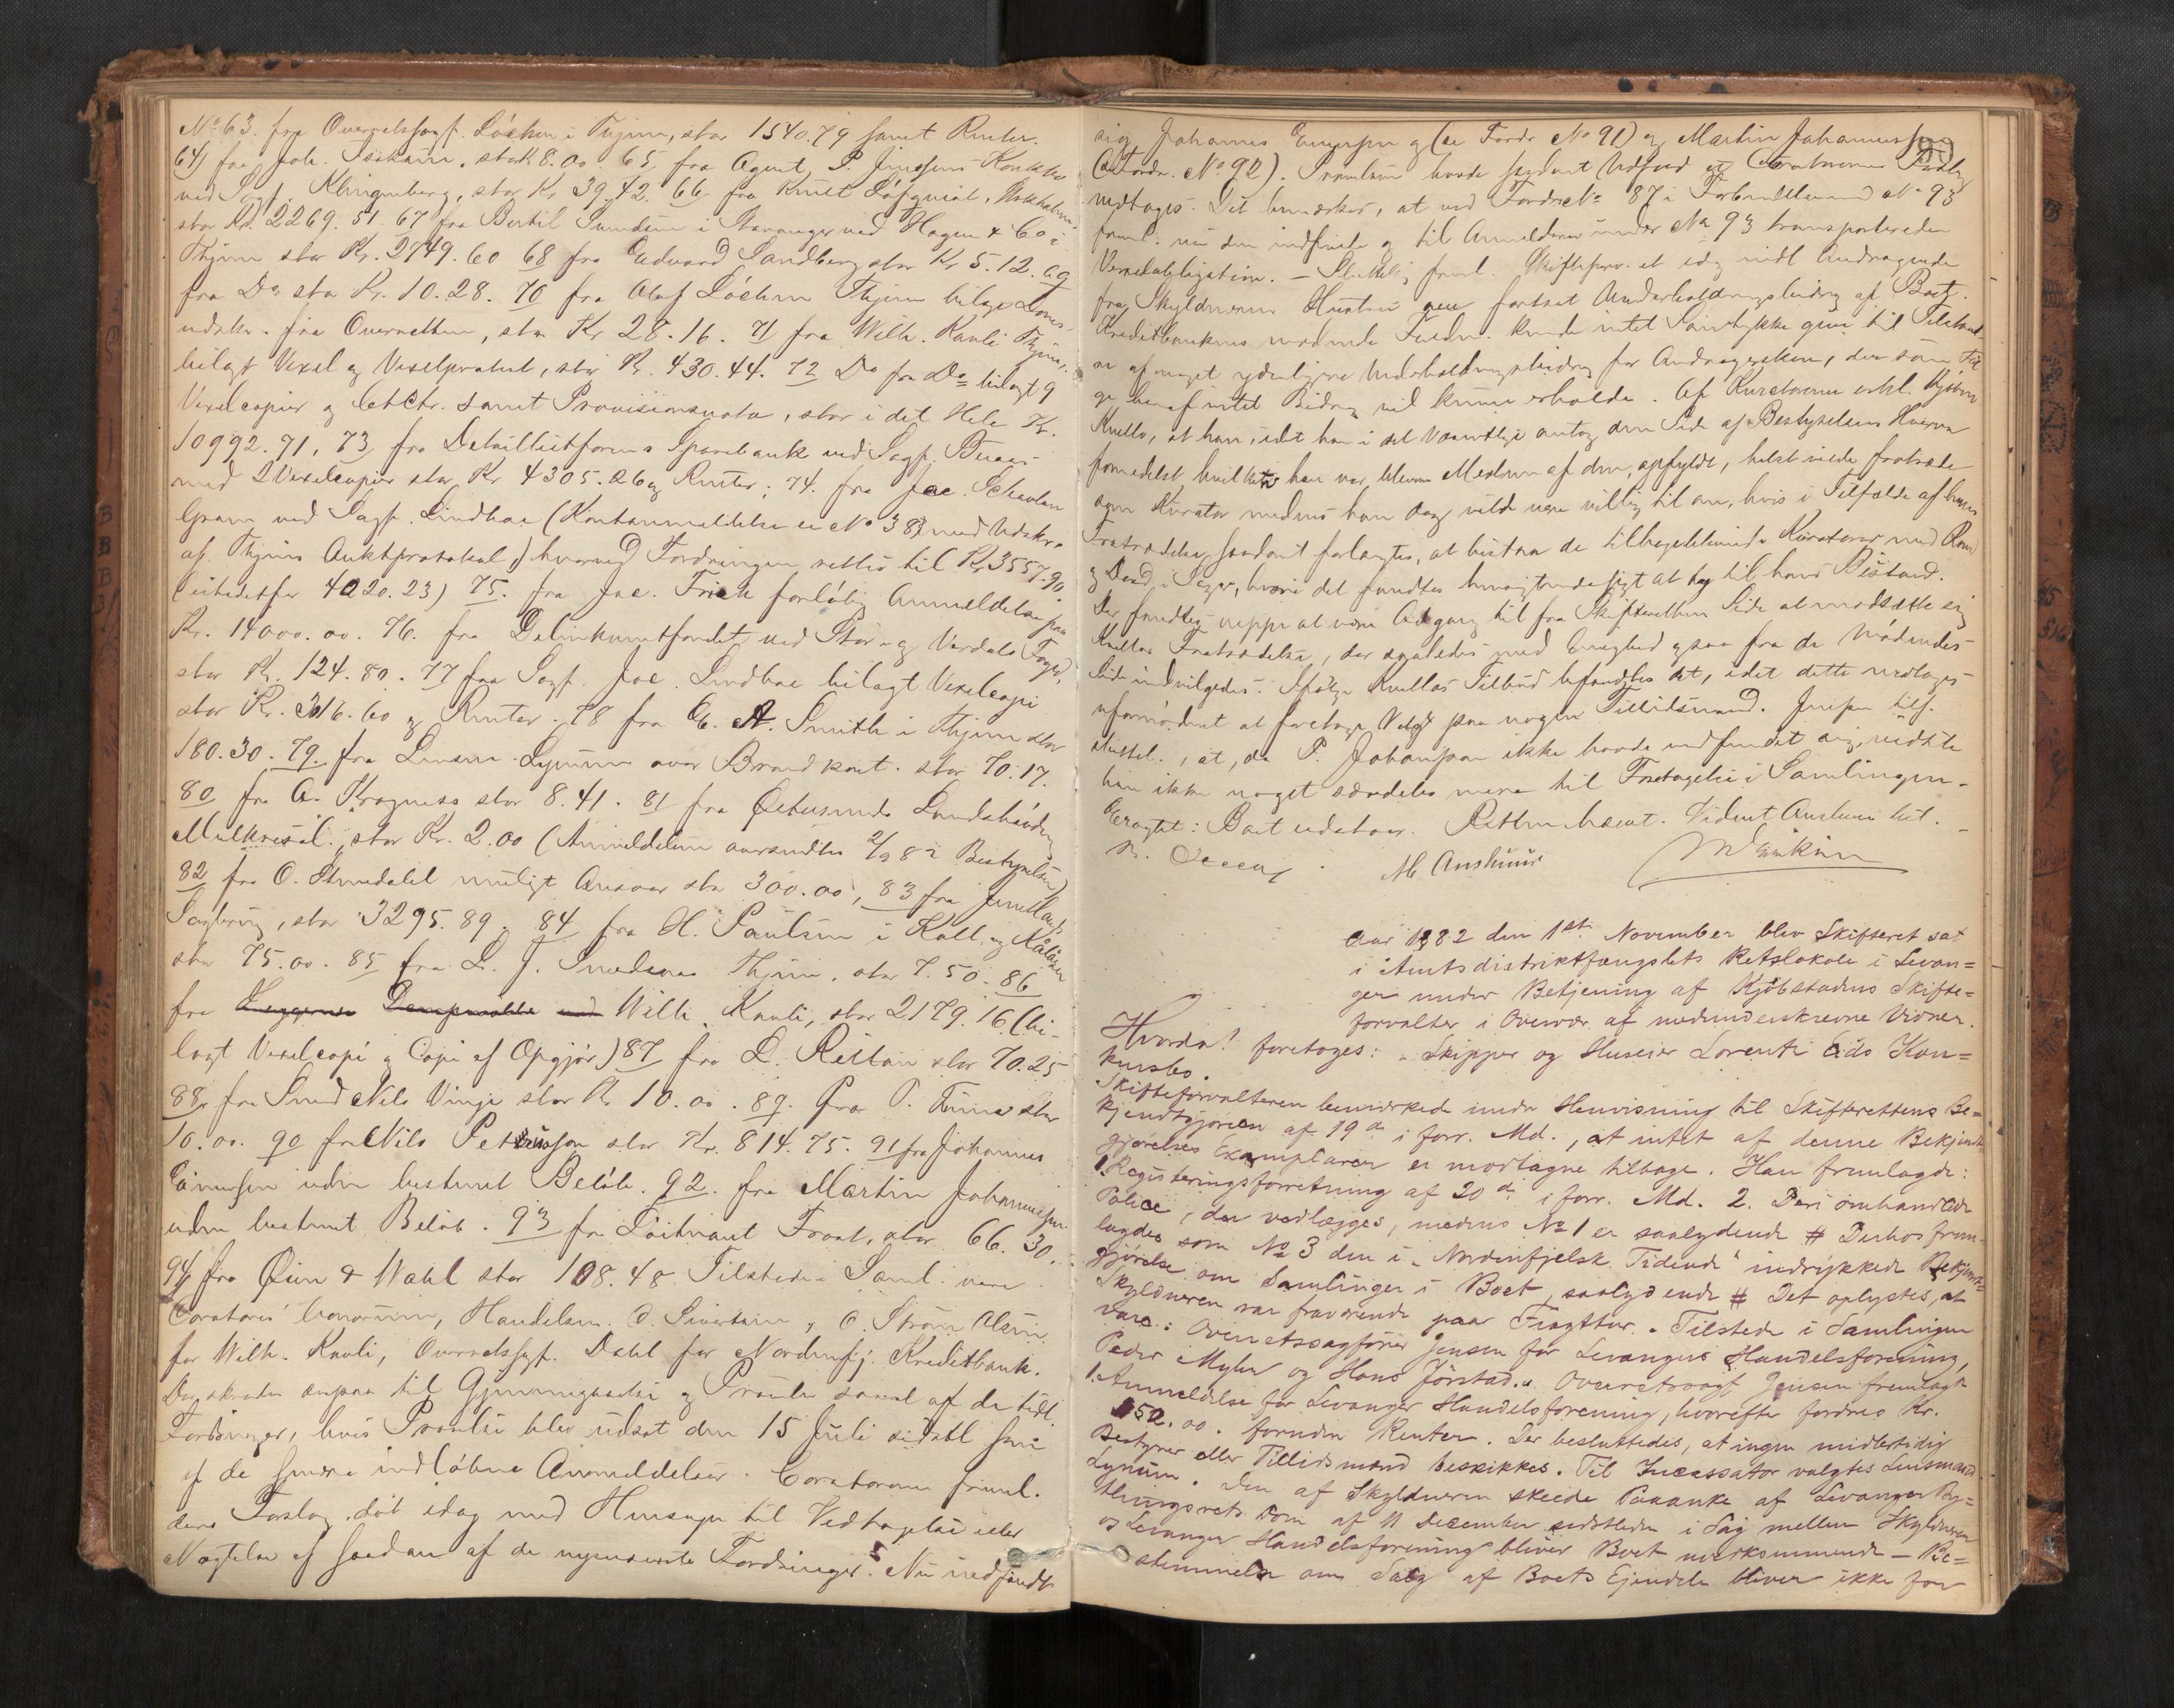 No 63. fra Overretssagf. Löchen i Thjem, stor 1540.79 samt Renter.
64) fra Joh. stor 8.00 65 fra Agent P. Jenssens Konkbo
ved Sagf. Klingenberg, stor Kr. 39.42. 66 fra Knut Löfquist,
stor Kr. 2269.51. 67 fra Bertil i Stavanger ved Hagen & Co i
Thjem stor Kr. 2749.60 68 fra Edvard Sandberg stor Kr 5.12. 69
fra Do stor Kr. 10.28. 70 fra Olaf Löchen Thjem bilagt Doms-
udskr. fra Overretten, stor Kr 28.16. 71 fra Wilh. Kavli Thjem,
bilagt Vexel og Vexelprotest, stor Kr. 430.44. 72 Do fra Do bilagt 9
Vexelcopier og samt Provisionsnota, stor i det Hele Kr.
10992.71, 73 fra Sparebank ved Sagf.
med 2 Vexelcopier stor Kr 4305.26 og Renter; 74. fra Jac. Schavlan
ved Sagf. Lindboe (Kontanmeldelse se No 38) med Udskr.
af Thjems Auktprotokol, hvorved Fordringen rettes til Kr 3557.90
(istedetfor 4020.23) 75. fra Jac. Frich forløbig Anmeldelse paa
Kr. 14000.00. 76. fra Delinkventfondet ved Stör- og Verdals Fogd.
stor Kr. 124.80. 77 fra Sagf. Joe. Lindboe bilagt Vexelcopi
stor Kr. 316.60 og Renter. 78 fra C. A. Smith i Thjem stor
180.30. 79. fra Lensm. Lynum over Brandkont. stor 70.17.
80 fra A. Kragness stor 8.41. 81 fra Östersunds Landshövding
stor Kr. 2.00 (Anmeldelsen oversendtes 2/9 82 Bestyrelsen)
82 fra O. Stenedalel muligt Ansvar stor 300.00, 83 fra Jemtlands
stor 3295.89. 84 fra H. Paulsen i Kall og
stor 75.00. 85 fra L. J. Thjem. stor 7.50. 86
fra Wilh. Kavli, stor 2179.16 (bi-
lagt Vexelcopi og Copi af Opgjör) 87 fra L. Rettan stor 70.25
88 fra Smed Nils Vinge stor Kr 10.00. 89. fra P. stor
10.00. 90 fra Nils stor Kr. 814.75. 91 fra Johannes
Einersen uden bestemt Belöb. 92. fra Martin Johannessen
uden bestemt Belöb. 93 fra Löitnant stor 66.30.
94 fra Öien & Wahl stor 108.48. Tilstede i Saml. vare
Curatores bonorum, Handelsm. O. Sivertsen, O. Ström Olsen
for Wilh. Kavli, Overretssgf. Dahl for Nordenfj. Kreditbank.
Der skredes ensaa til Gjennemgaaelse og Prövelse saavel af de tidl.
Fordringer, hvis Prövelse blev udsat den 15 Juli sidstl som
af de senere indlöbne Anmeldelser. Curatorerne freml.
deres Forslag döt idag med Hensyn til Vedtagelse eller
Nægtelse af saadan af de nyanævnte Fordringer. Nu indfandt
sig Johannes Einersen og (se Fordr. No 91) og Martin Johannessen
(se Fordr. No 92). Prövelsen havde saadant Udfald at Curatorernes Forslag
vedtages. Det bemærkes, at ved Fordr No 87 i Forbindelse med No 93
freml. nu den indfriede og til Anmelderen under No 93 transporterede
Vexelobligation. – Skifteforv. et idag indl. Andragende
fra Skyldnerens Hustru om fortsat Underholdningsbidrag af Boet.
Kreditbankens mødende Fuldm. kunde intet Samtykke give til Tilstaael-
se af noget yderligere Underholdningsbidrag for Andragersken, der som Föl-
ge heraf intet Bidrag vil kunne erholde. Af Kuratorerne erkl.
Kvello, at han, idet han i det Væsentlige antog den Side af Bestyrelsens Hverv
formedelst hvilket han var bleven Medlem af den, opfyldt, helst vilde fratræde
som Kurator medens han dog vilde være villig til om, hvis i Tilfælde af hans
Fratrædelse saadant forlangtes, at bistaa de tilbageblivende Kuratorer med Raad
og Daad i Sager, hvori det fandtes hensigtsmæssigt at ty til hans Bistand.
Der fandtes neppe at være Adgang til fra Skifterettens Side at modsætte sig
Kvellos Fratrædelse, der saaledes med Enighed ogsaa fra de Mødendes
Side indvilgedes. Ifölge Kvellos Tilbud befandtes det, idet dette modtages
ufornödent at foretage Valg paa nogen Tillidsmand.
at, da P. Johansson ikke havde indfundet sig, vidste
han ikke noget særdeles mere til Foretagelse i Samlingen.
Eragtet: Boet udstaar. Retten hævet.
M Anshuus
Aar 1882 den 1ste November blev Skifteret sat
i Amtsdistriktfængslets Retslokale i Levan=
ger under Betjening af Kjöbstadens Skifte=
forvalter i Overvær af nedenunderskrevne Vidner.
Hvorda! foretoges: Skipper og Huseier Lorents Eids Kon=
kursbo.
Skifteforvalteren bemærkede under Henvisning til Skifterettens Be=
kjendtgjörelse af 19de i forr. Md., at intet af denne Bekjendt-
gjörelses Exemplarer er modtagne tilbage. Han fremlagde:
1. Registreringsforretning af 20de i forr. Md. 2. Deri omhandlede
Police, der vedlægges, medens No 1 er saalydende # Derhos frem-
lagdes som No 3 den i „Nordenfjelsk Tidende“ indrykkede Bekjendt=
gjörelse om Samlinger i Boet, saalydende # Det oplystes, at
Skyldneren var fraværende paa Fragttur. Tilstede i Samlingen
vare: Overretssagförer Jensen for Levangers Handelsforening,
Peder Myhr og Hans Jörstad. Overretssagf. Jensen fremlagde
1. Anmeldelse for Levanger Handelsforening, hvorefter fordres Kr.
152.00. foruden Renter. Der besluttedes, at ingen midlertidig
Bestyrer eller Tillidsmand beskikkes. Til Incassator valgtes Lensmand
Lynum. Den af Skyldneren skeede Paaanke af Levanger By=
thingsrets Dom af 11 December sidstleden i Sag mellem Skyldneren
og Levanger Handelsforening bliver Boet uvedkommende – Be=
stemmelse om Salg af Boets Ejendele bliver ikke for